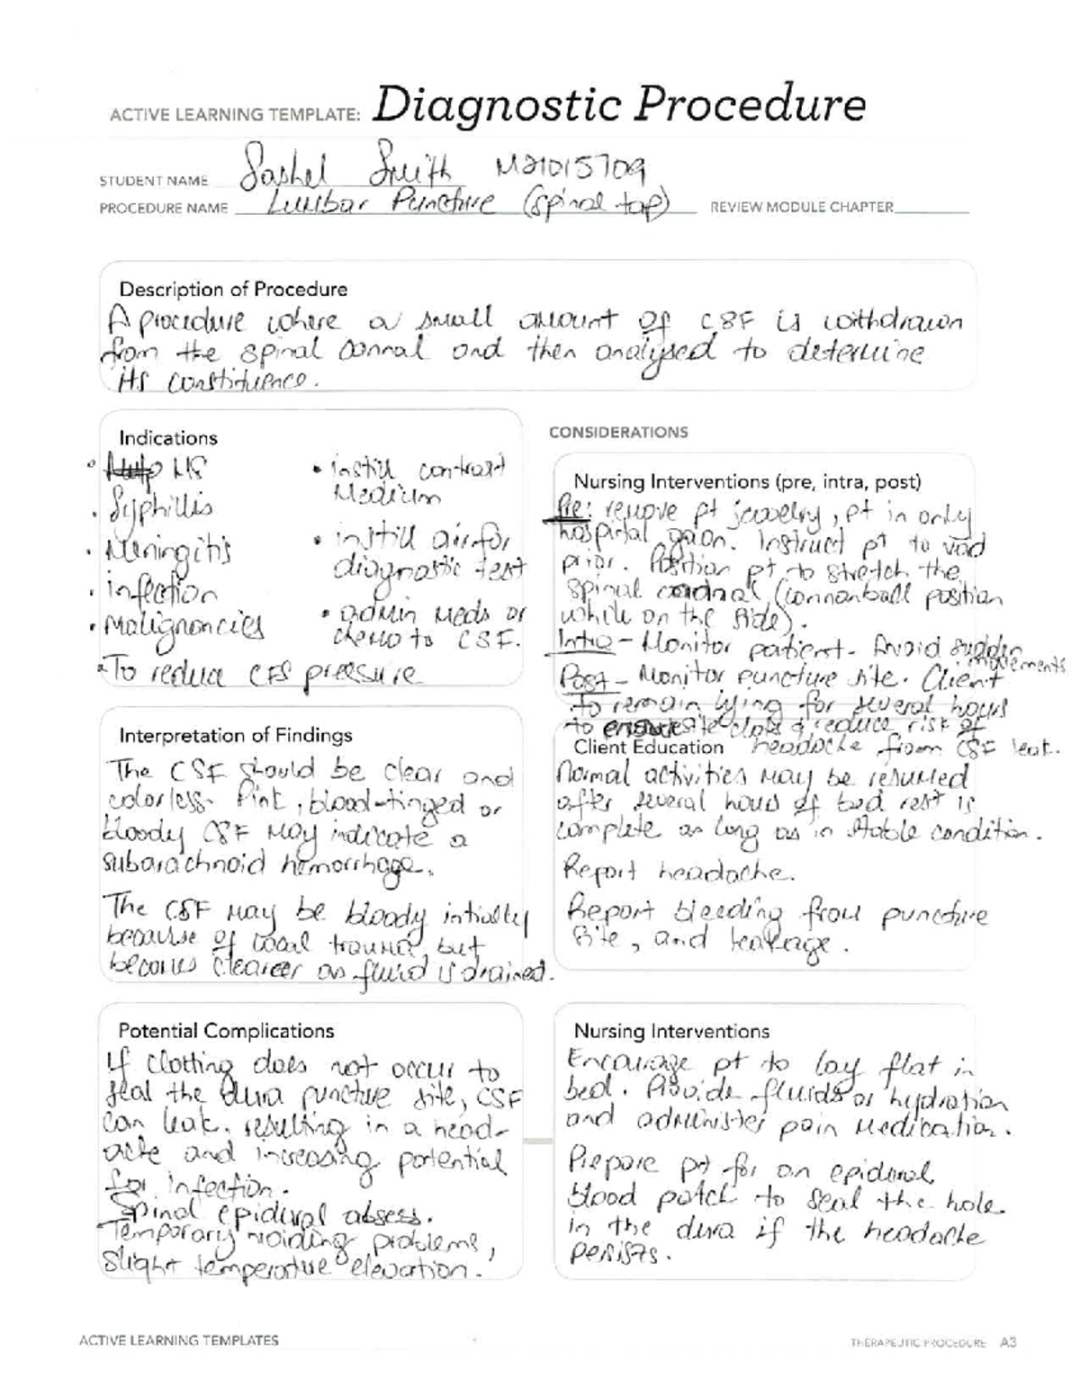 ACTIVE LEARNING TEMPLATE: Diagnostic Procedure
STUDENT NAME Sashel Smith M21015709
PROCEDURE NAME Lumbar Puncture (spinal tap) REVIEW MODULE CHAPTER
Description of Procedure
A procedure where a small amount of CSF is withdrawn
from the spinal cannal and then analysed to determine
its constituence.
Indications
• MS
• Syphillis
• Meningitis
• infection
• Malignancies
• To reduce CFS pressure
• instill contrast
Medium
• instill air for
diagnostic test
• admin meds or
chemo to CSF.
CONSIDERATIONS
Nursing Interventions (pre, intra, post)
Pre: remove pt jewelry, pt in only
hospital gaon. Instruct pt to void
prior. Position pt to stretch the
spinal (cannonball position
while on the side).
Intra - Monitor patient. Avoid sudden
movements
Post - Monitor puncture site. Client
to remain lying for several hours
to ensure site clots & reduce risk of
headache from CSF leak.
Interpretation of Findings
The CSF should be clear and
colorless. Pink, blood-tinged or
bloody CSF may indicate a
subarachnoid hemorrhage.
The CSF may be bloody intially
because of local trauma but
becomes clearer as fluid is drained.
Client Education
Normal activities may be resumed
after several hours of bed rest is
complete as long as in stable condition.
Report headache.
Report bleeding from puncture
site, and leakage.
Potential Complications
If clotting does not occur to
seal the dura puncture site, CSF
can leak. resulting in a head-
ache and increasing potential
for infection.
Spinal epidural absess.
Temporary voiding problems,
slight temperature elevation.
Nursing Interventions
Encourage pt to lay flat in
bed. Provide fluids or hydration
and administer pain medication.
Prepare pt for an epidural
blood patch to seal the hole
in the dura if the headache
persists.
ACTIVE LEARNING TEMPLATES
THERAPEUTIC PROCEDURE A3